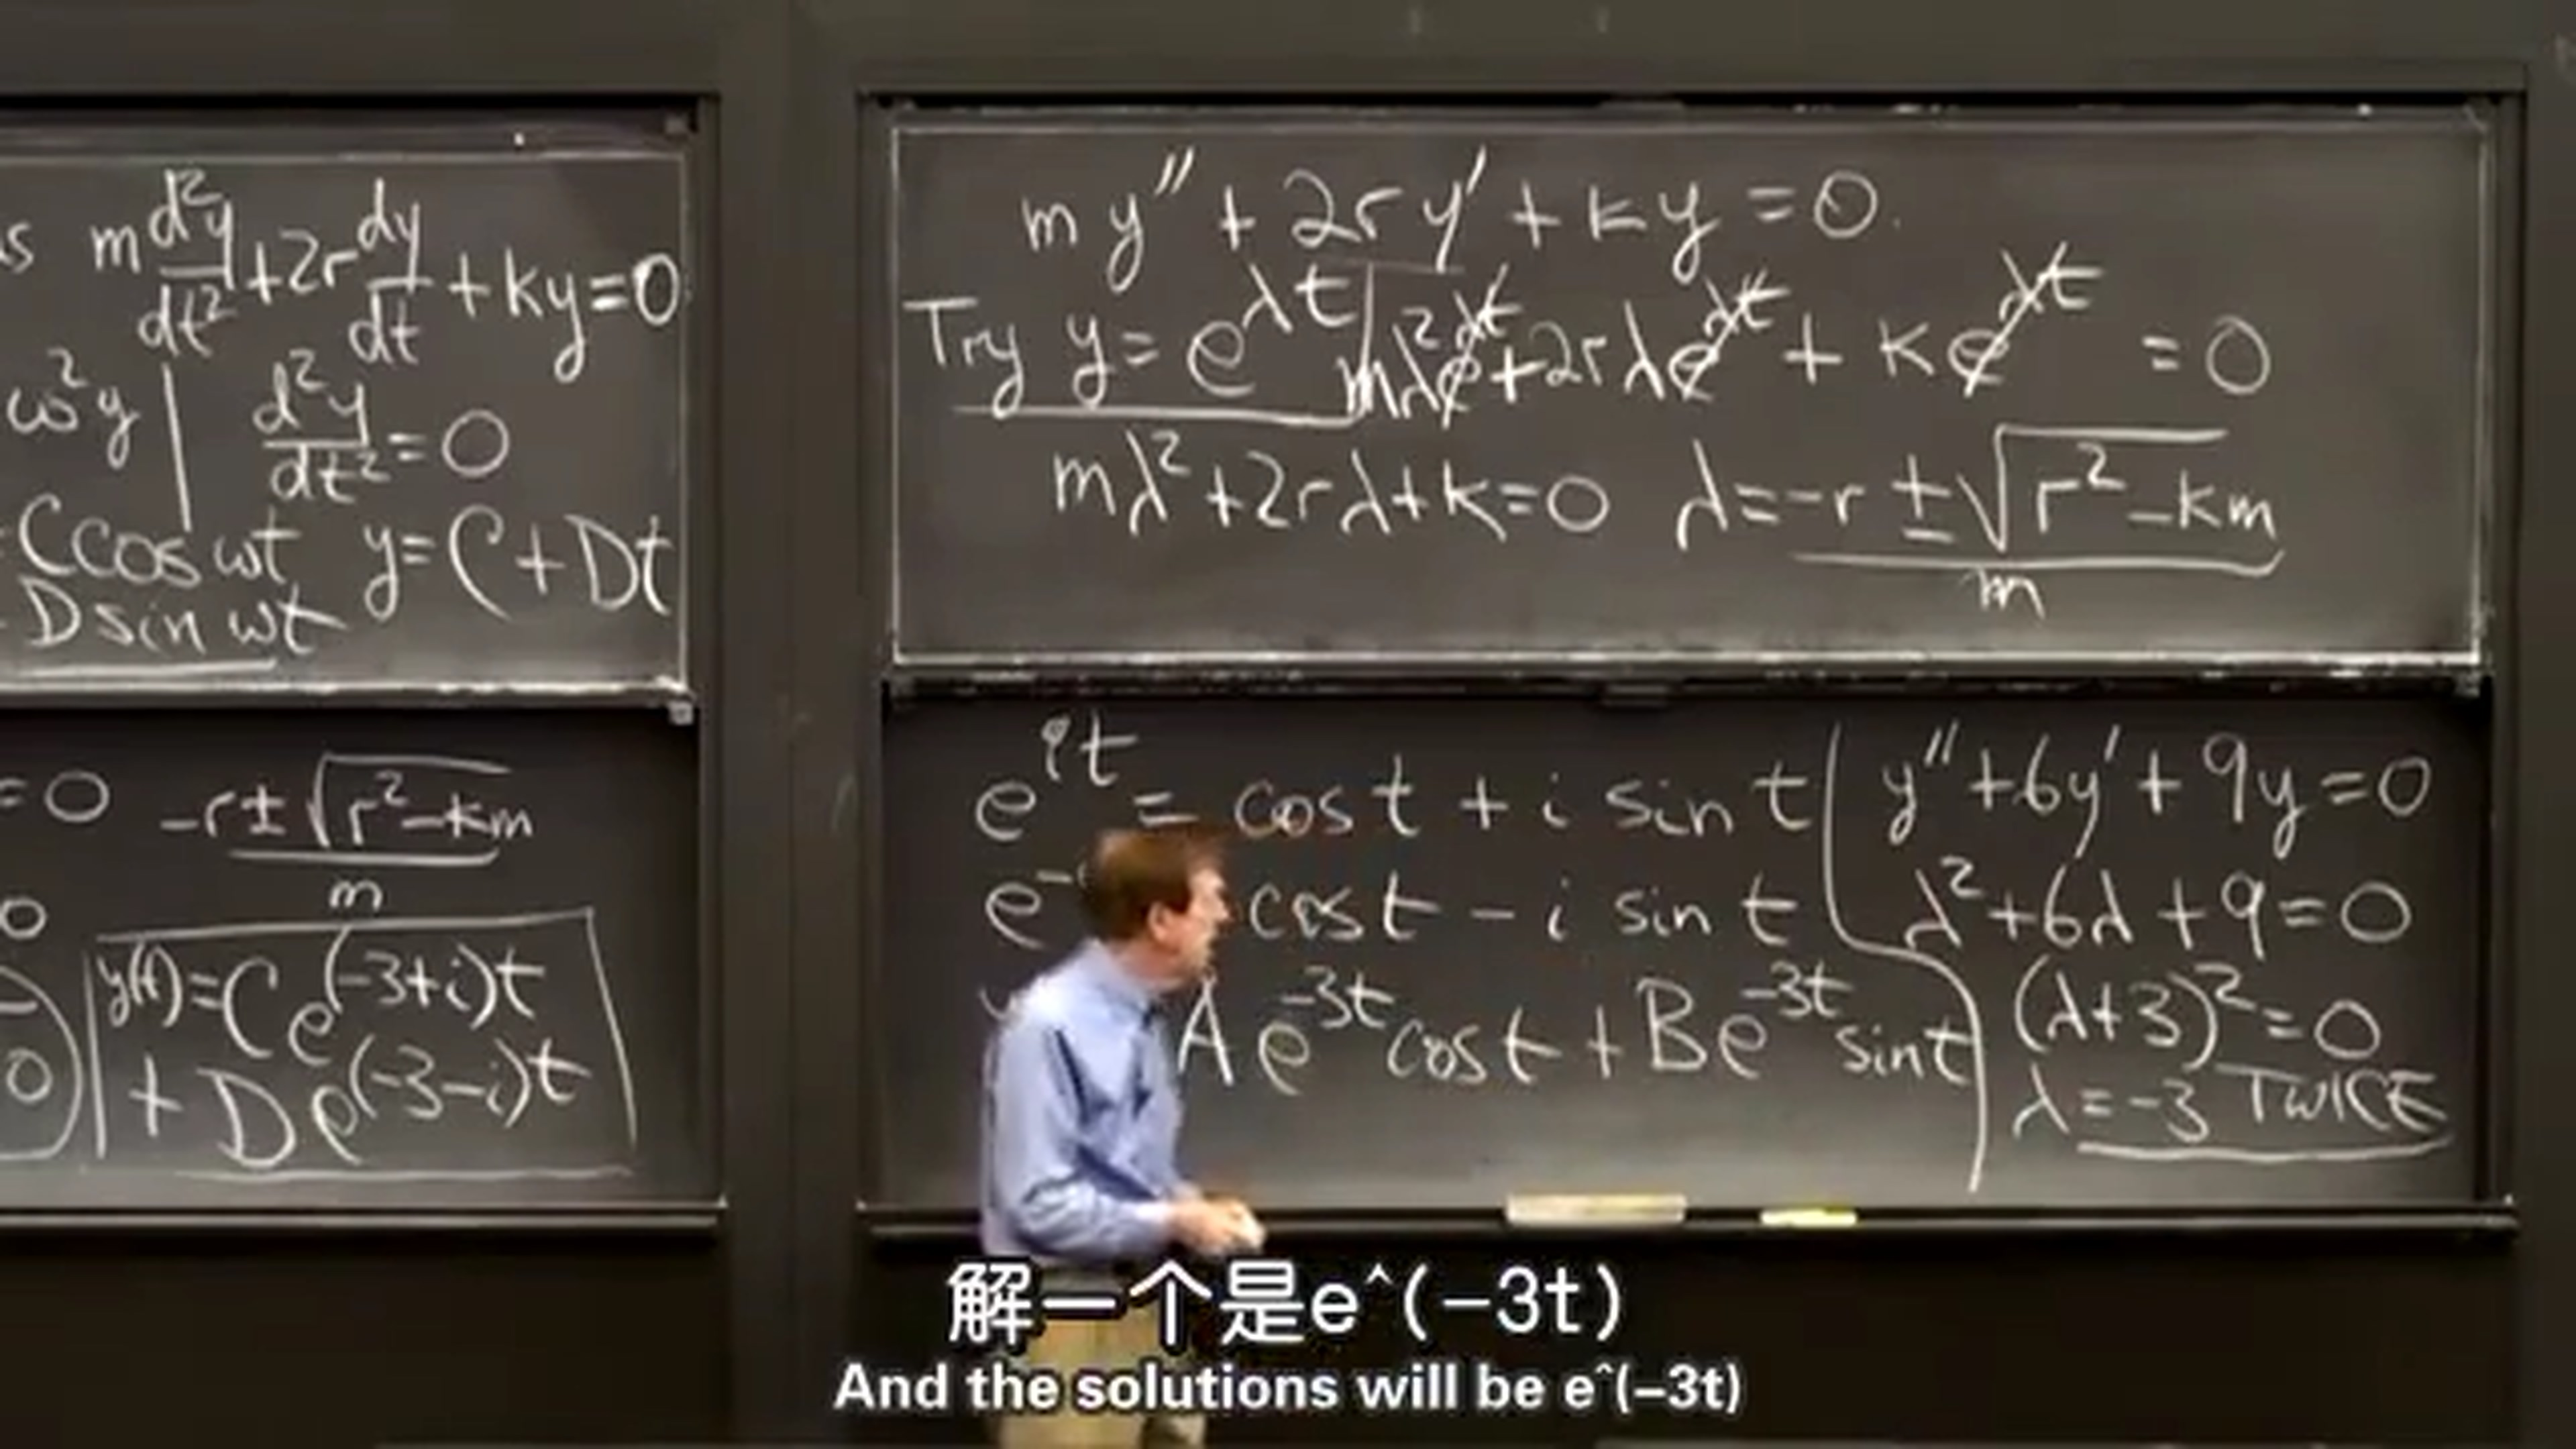 m d²y/dt² + 2r dy/dt + ky = 0
ω²y | d²y/dt² = 0
C cos ωt y = C + Dt
D sin ωt
= 0 (-r ± √(r² - km))/m
y(t) = Ce^(-3+i)t
+ De^(-3-i)t
my'' + 2ry' + ky = 0.
Try y = e^λt | mλ²e^λt + 2rλe^λt + ke^λt = 0
mλ² + 2rλ + k = 0 λ = (-r ± √(r² - km))/m
e^it = cos t + i sin t
cos t - i sin t
Ae^-3t cos t + Be^-3t sin t
y'' + 6y' + 9y = 0
λ² + 6λ + 9 = 0
(λ+3)² = 0
λ = -3 TWICE
解一个是e^(-3t)
And the solutions will be e^(-3t)